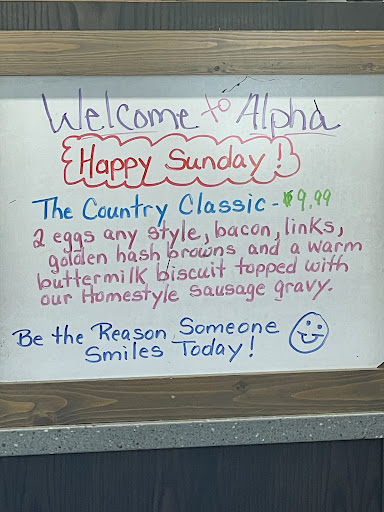 Welcome to Alpha
Happy Sunday!
The Country Classic - $9.99
2 eggs any style, bacon, links,
golden hash browns and a warm
buttermilk biscuit topped with
our Homestyle sausage gravy.
Be the Reason Someone
Smiles Today!